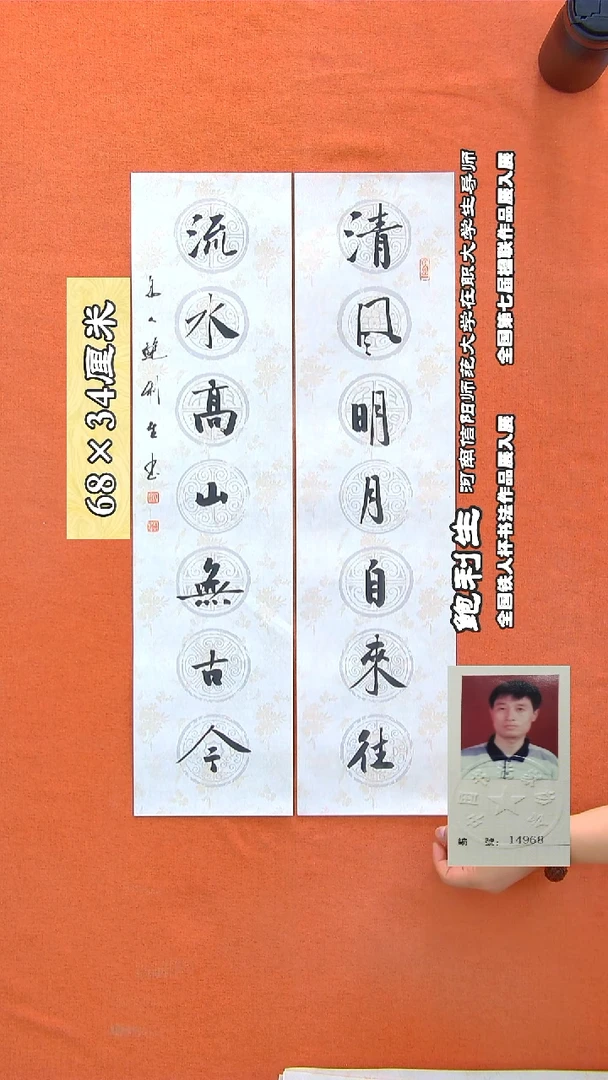 清风明月自來往
流水高山無古今
鲍利生书
68×34厘米
鲍利生
河南信阳师范大学在职大学生导师
全国铁人杯书法作品展入展
全国第七届楹联作品展入展
编 号：14968